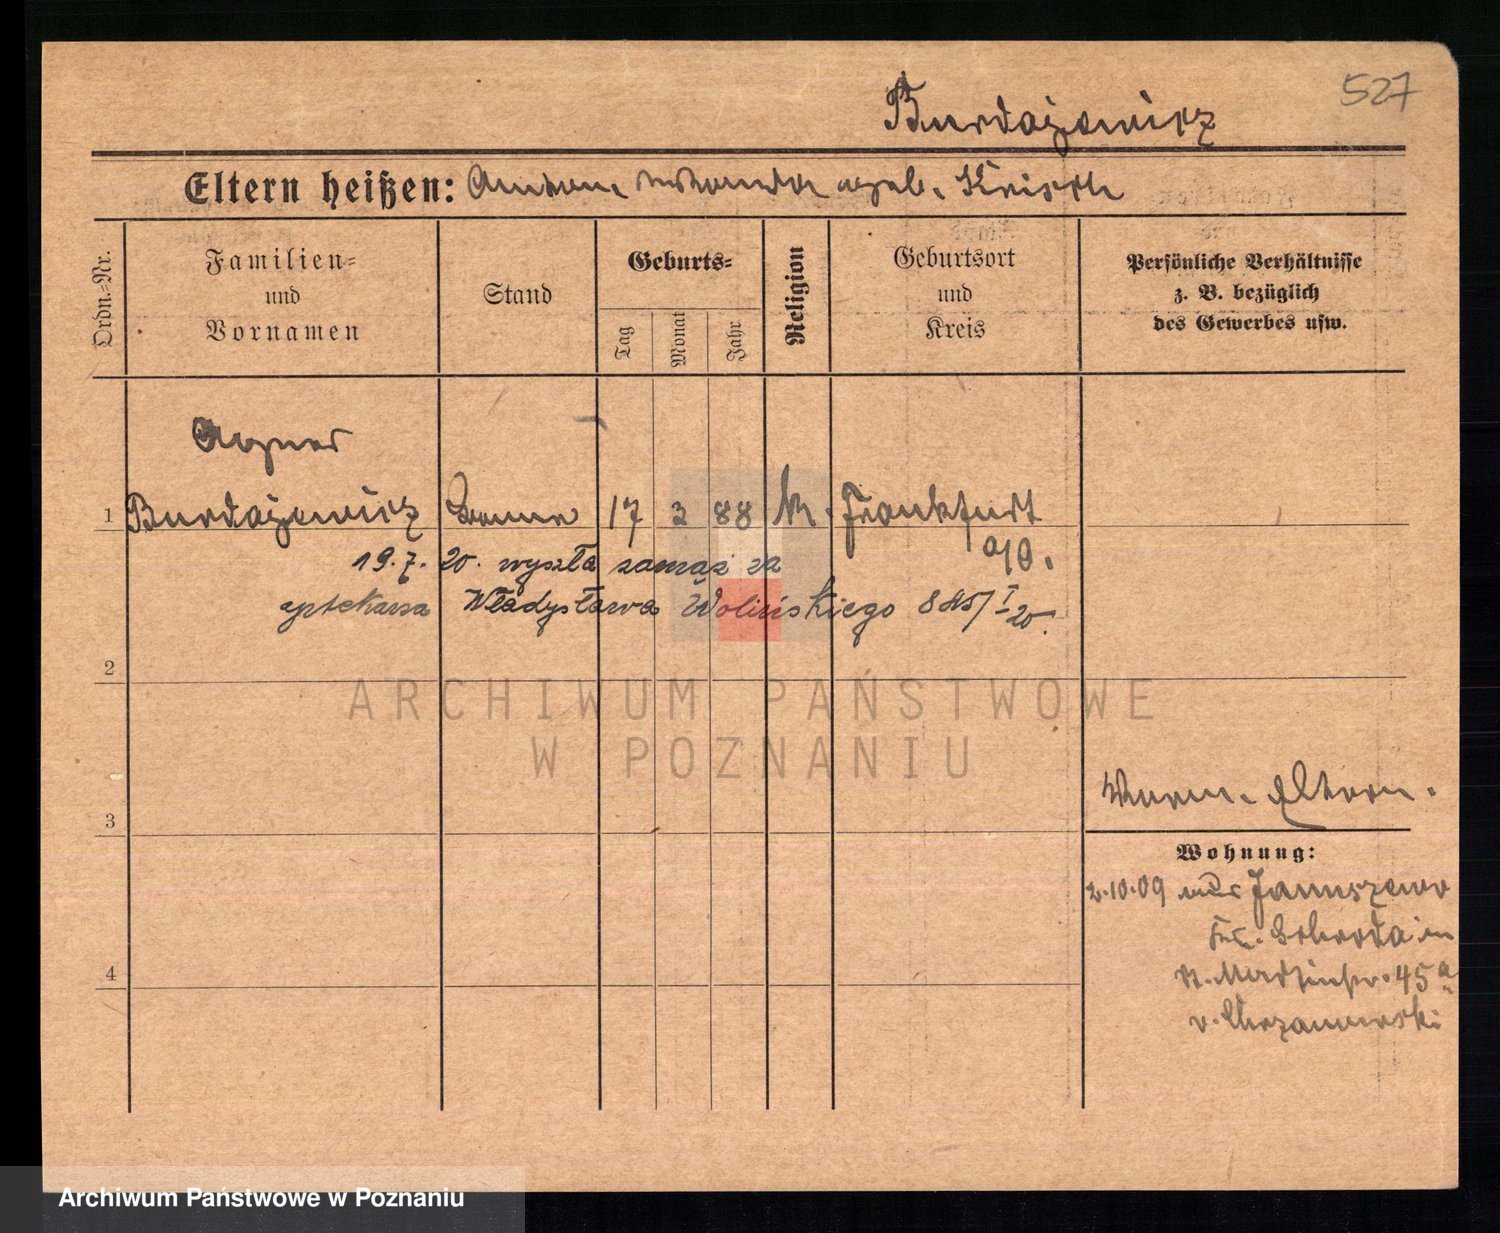 527
Burdajewicz
Eltern heißen: Anton geb.
Ordn.-Nr.
Familien-
und
Vornamen
Stand
Geburts-
Tag
Monat
Jahr
Religion
Geburtsort
und
Kreis
Persönliche Verhältnisse
z. B. bezüglich
des Gewerbes usw.
Agnes
1 Burdajewicz 17 3 88 k. Frankfurt
a/O.
19.7. 20. wyszła zamąż za
aptekarza Władysława Wolińskiego
2
3
4
Eltern.
Wohnung:
2.10.09 Januszewo
Kr. Schroda in
St. Martinstr. 45a
v. Chrzanowski
ARCHIWUM PAŃSTWOWE
W POZNANIU
Archiwum Państwowe w Poznaniu